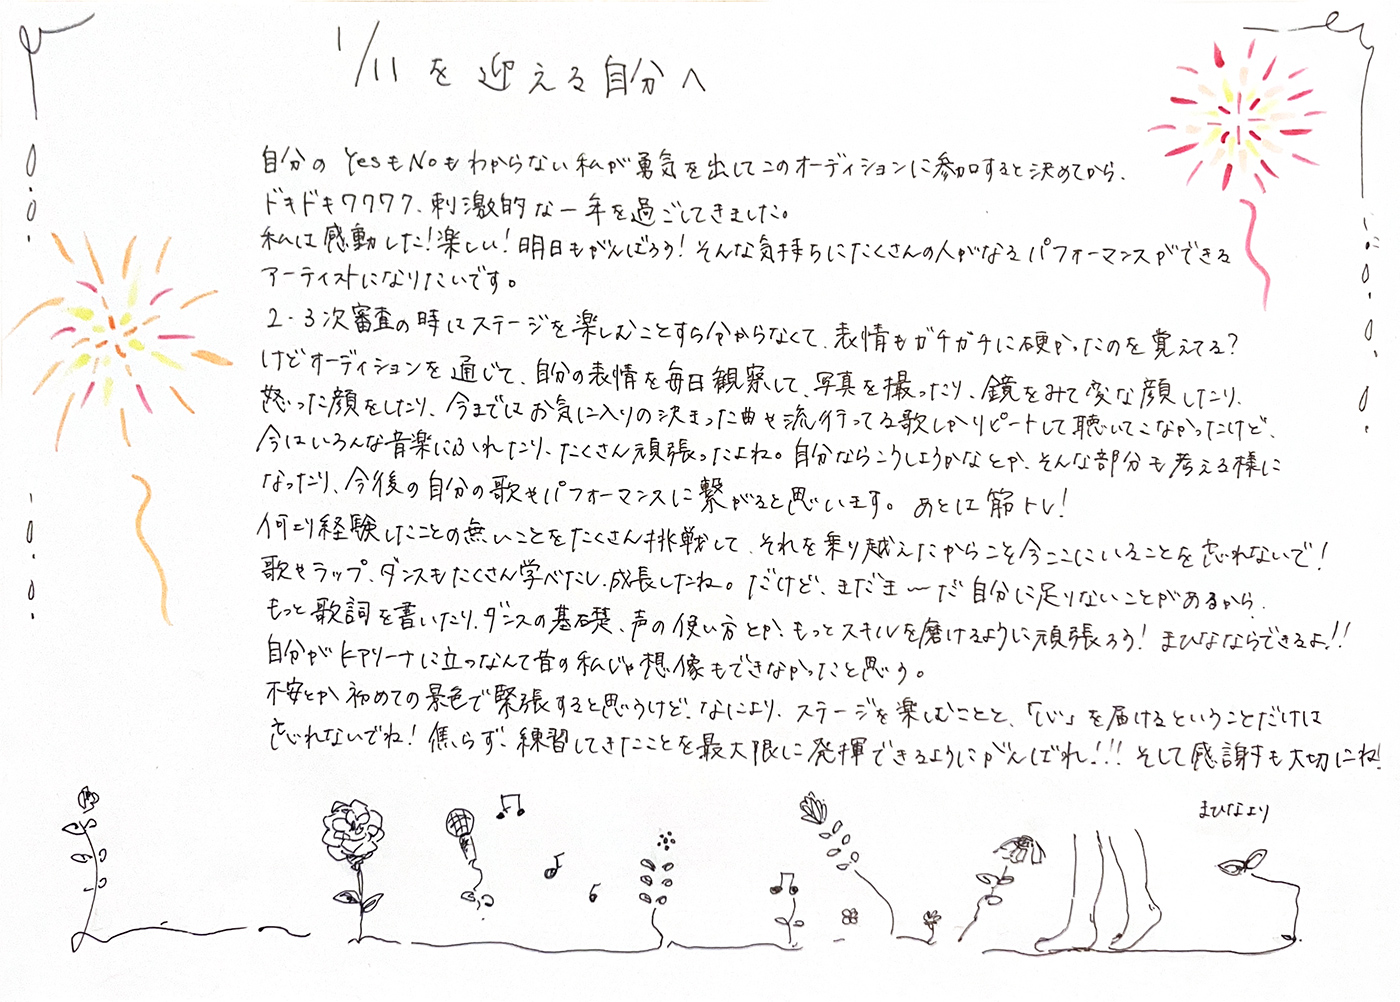 1/11を迎える自分へ
自分のYesもNoもわからない私が勇気を出してこのオーディションに参加すると決めてから、
ドキドキワクワク、刺激的な一年を過ごしてきました。
私は感動した！楽しい！明日もがんばろう！そんな気持ちにたくさんの人がなるパフォーマンスができる
アーティストになりたいです。
2・3次審査の時はステージを楽しむことすら分からなくて、表情もガチガチに硬かったのを覚えてる？
けどオーディションを通じて、自分の表情を毎日観察して、写真を撮ったり、鏡をみて変な顔したり、
怒った顔をしたり、今まではお気に入りの決まった曲や流行ってる歌しかリピートして聴いてこなかったけど、
今はいろんな音楽にふれたり、たくさん頑張ったよね。自分ならこうしようかなとか、そんな部分も考える様に
なったり、今後の自分の歌やパフォーマンスに繋がると思います。あとは筋トレ！
何より経験したことの無いことをたくさん挑戦して、それを乗り越えたからこそ今ここにいることを忘れないで！
歌やラップ、ダンスもたくさん学べたし、成長したね。だけど、まだま〜だ自分に足りないことがあるから、
もっと歌詞を書いたり、ダンスの基礎、声の使い方とか、もっとスキルを磨けるように頑張ろう！まひなならできるよ!!
自分がKアリーナに立つなんて昔の私じゃ想像もできなかったと思う。
不安とか初めての景色で緊張すると思うけど、なにより、ステージを楽しむことと、「心」を届けるということだけは
忘れないでね！焦らず、練習してきたことを最大限に発揮できるようにがんばれ!!!そして感謝も大切にね！
まひなより